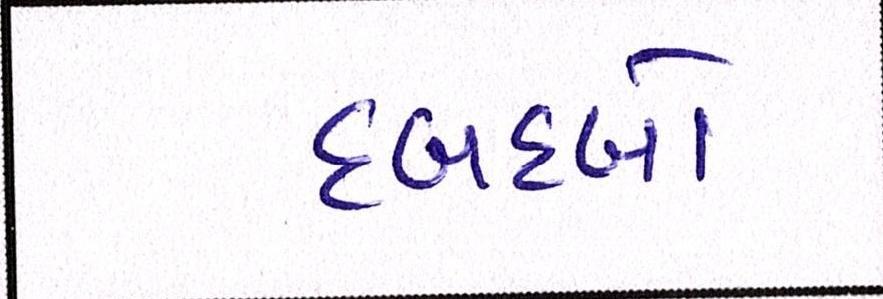 દબદબો